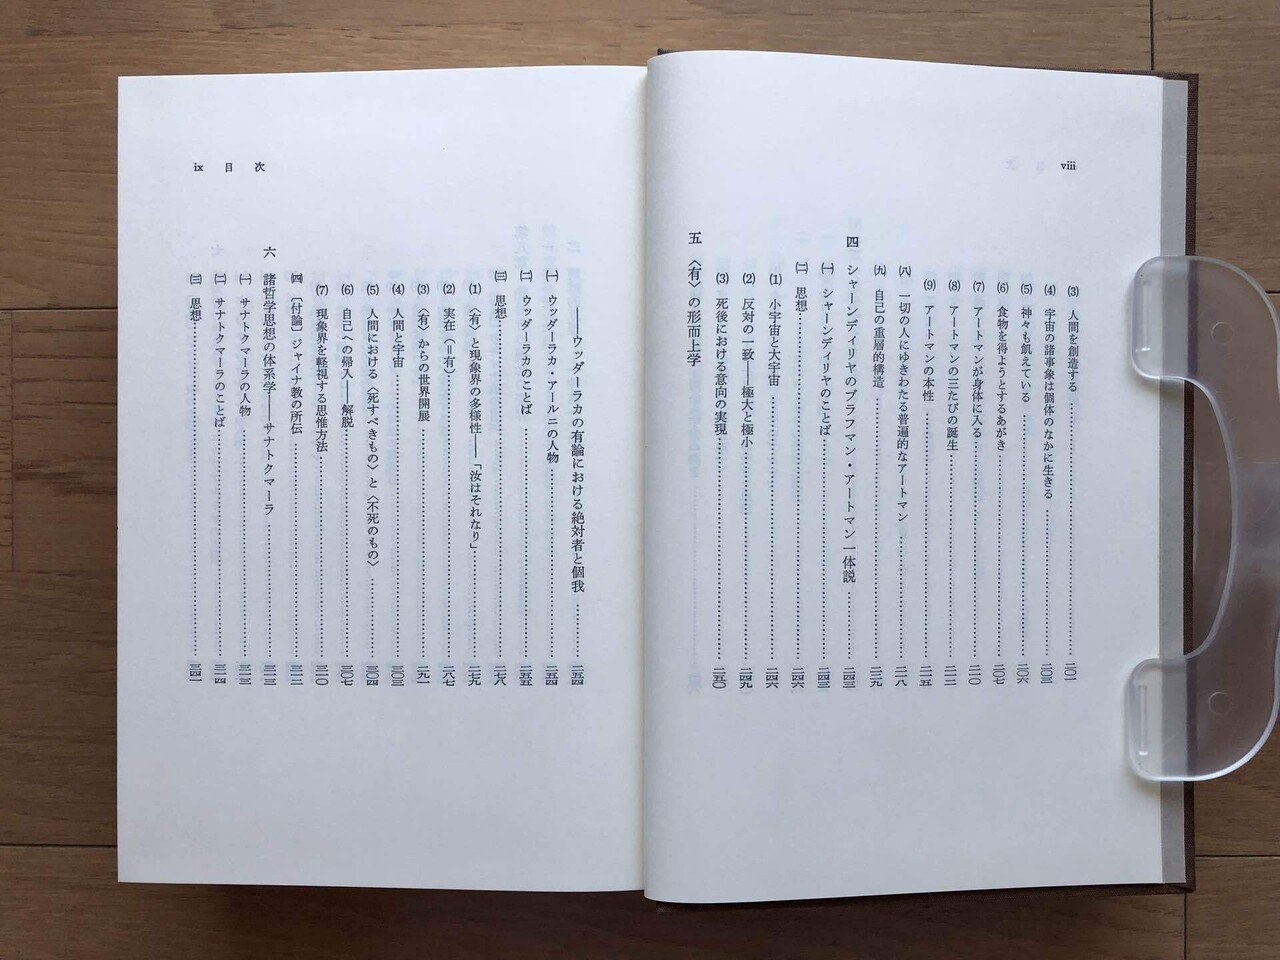 viii
(3) 人間を創造する……二〇一
(4) 宇宙の諸事象は個体のなかに生きる……二〇三
(5) 神々も飢えている……二〇六
(6) 食物を得ようとするあがき……二〇七
(7) アートマンが身体に入る……二一〇
(8) アートマンの三たびの誕生……二一二
(9) アートマンの本性……二一五
(八) 一切の人にゆきわたる普遍的なアートマン……二一八
(九) 自己の重層的構造……二三九
四 シャーンディリヤのブラフマン・アートマン一体説……二四三
(一) シャーンディリヤのことば……二四三
(二) 思想……二四六
(1) 小宇宙と大宇宙……二四六
(2) 反対の一致——極大と極小……二四九
(3) 死後における意向の実現……二五〇
五 〈有〉の形而上学
ix 目次
——ウッダーラカの有論における絶対者と個我……二五四
(一) ウッダーラカ・アールニの人物……二五四
(二) ウッダーラカのことば……二五五
(三) 思想……二七八
(1) 〈有〉と現象界の多様性——「汝はそれなり」……二七九
(2) 実在(=有)……二八七
(3) 〈有〉からの世界開展……二九一
(4) 人間と宇宙……三〇三
(5) 人間における〈死すべきもの〉と〈不死のもの〉……三〇四
(6) 自己への帰入——解脱……三〇七
(7) 現象界を軽視する思惟方法……三一〇
(四) 〔付論〕ジャイナ教の所伝……三一二
六 諸哲学思想の体系学——サナトクマーラ……三一三
(一) サナトクマーラの人物……三一三
(二) サナトクマーラのことば……三一四
(三) 思想……三四一